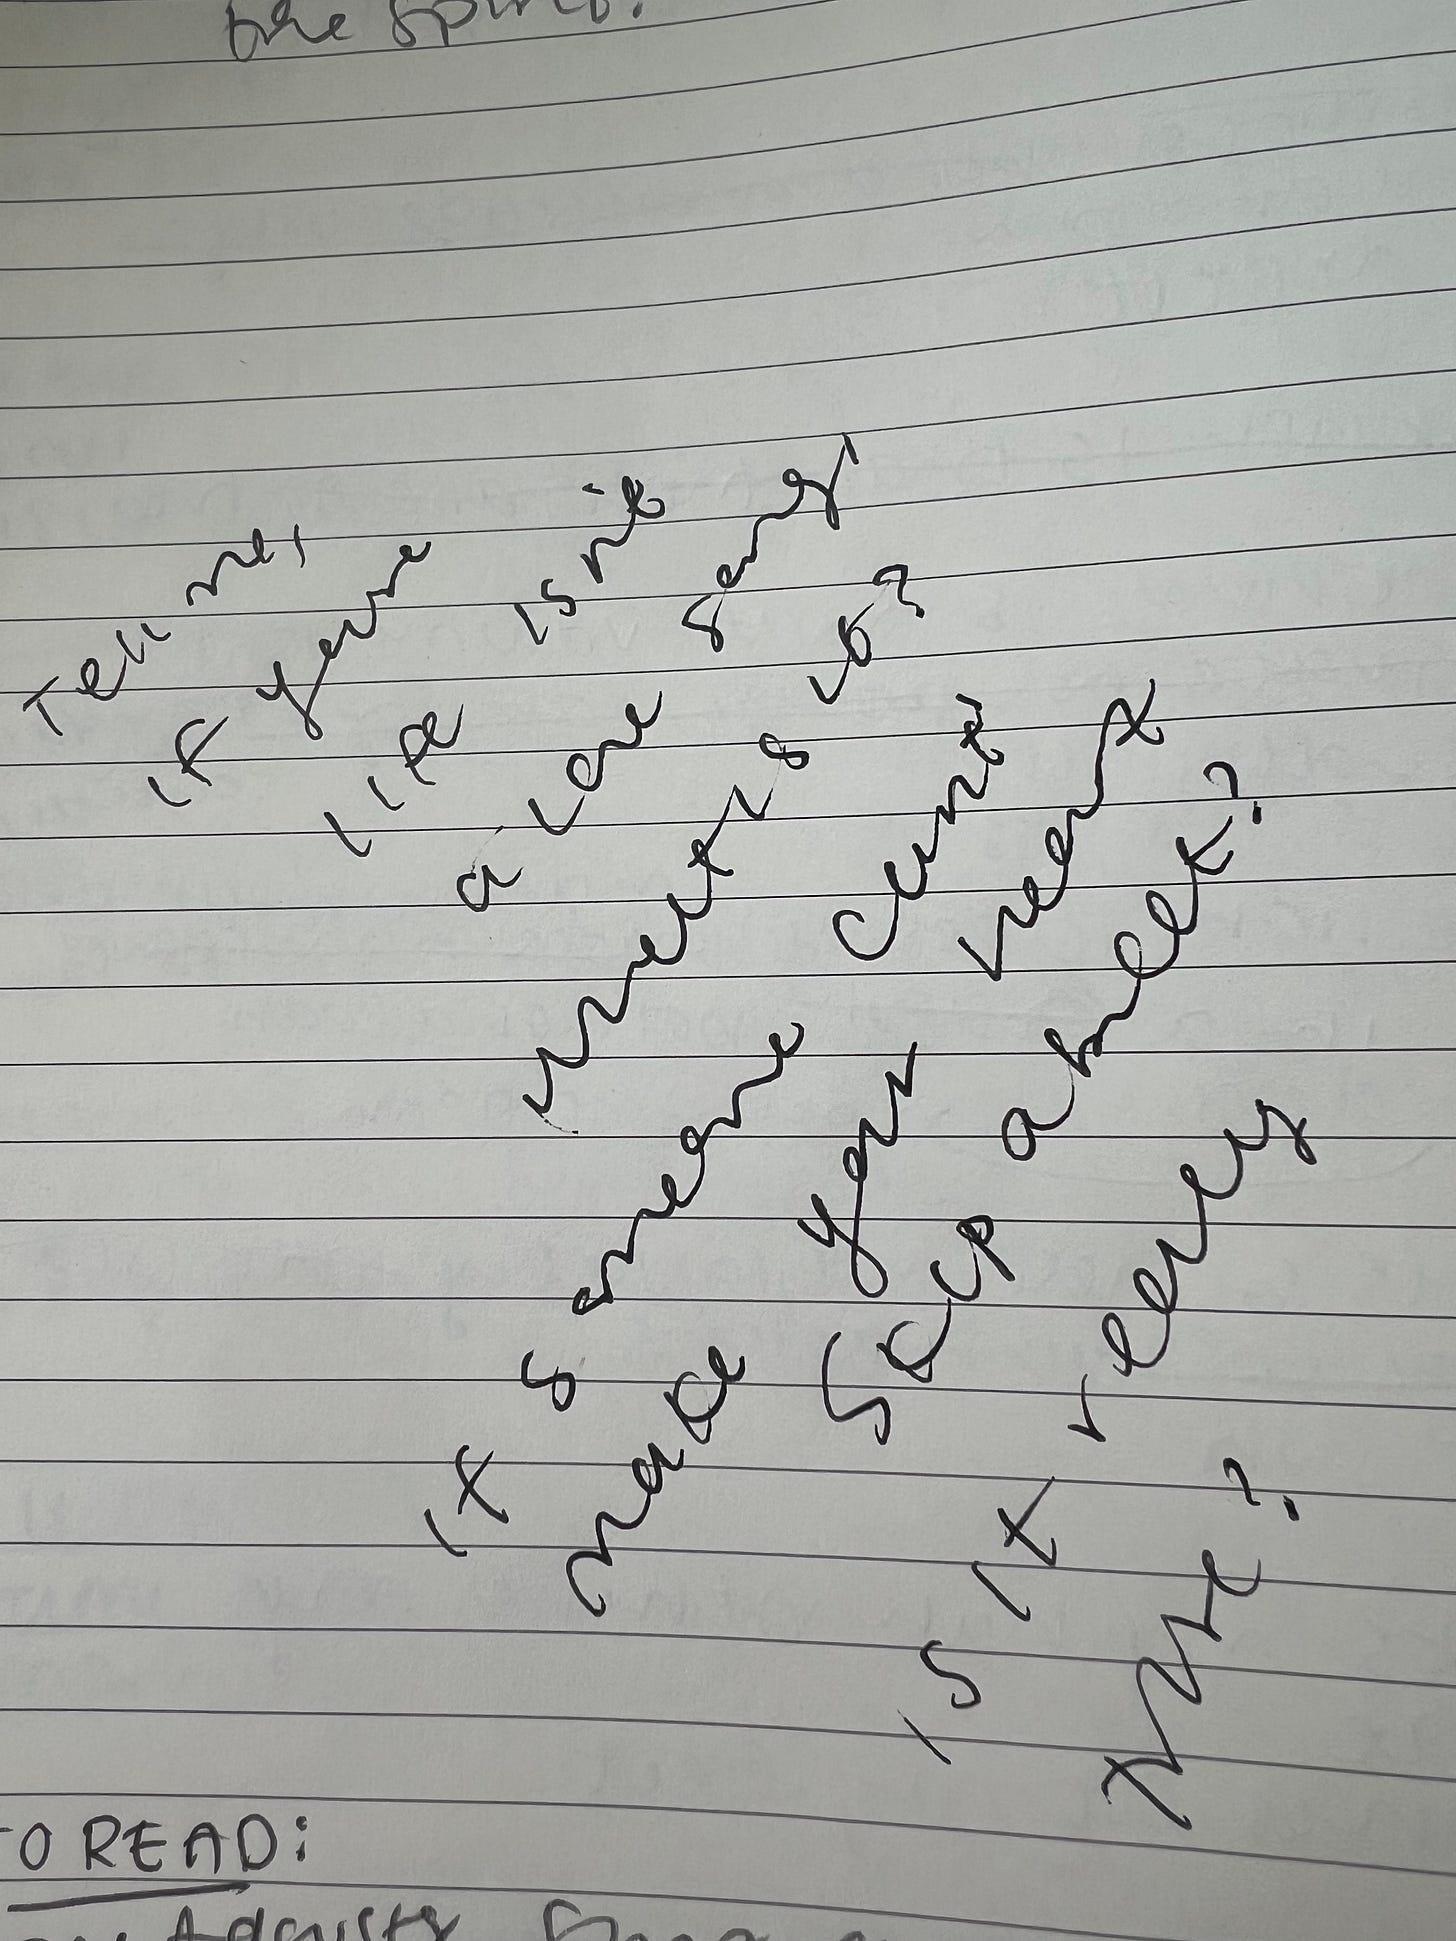 Tell me,
if your
life isn't
a love song,
what is
If someone can't
make your heart
skip a beat?
is it really
true?
TO READ: